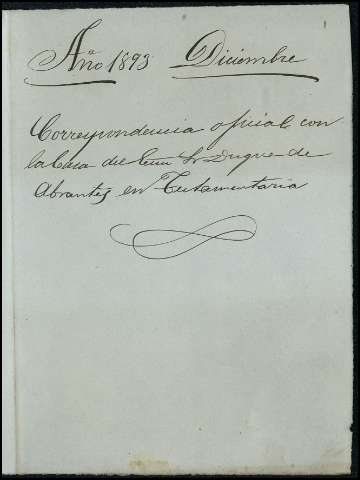 Año 1893 Diciembre
Correspondencia oficial con
la Casa del Exmo Sr Duque de
Abrantes en Testamentaria